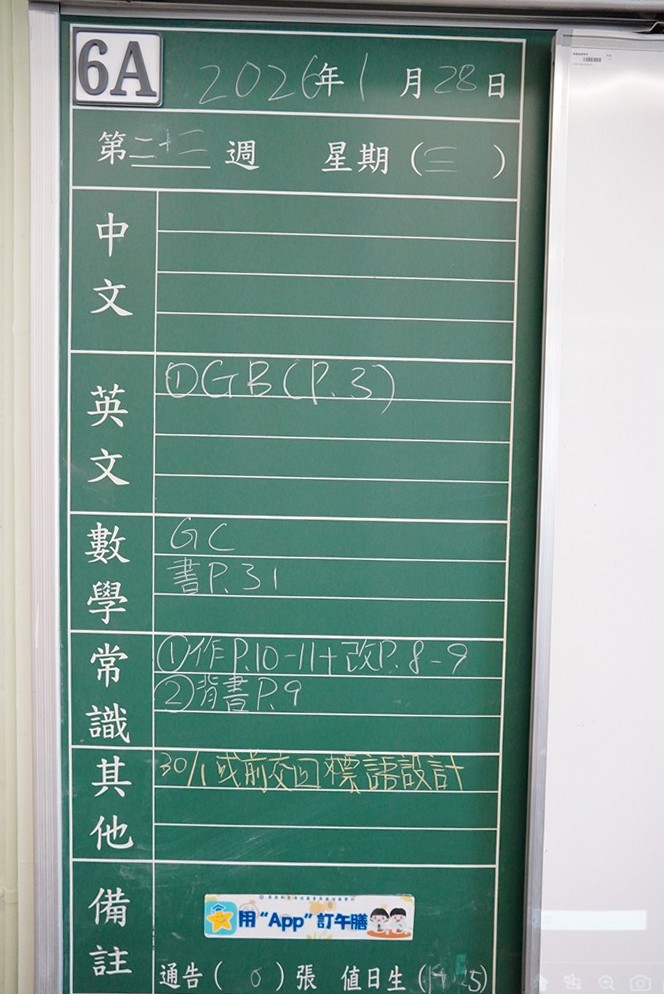 6A 2026年1月28日
第二十二週 星期(三)
中文
英文
①GB(P.3)
數學
GC
書P.31
常識
①作P.10-11+改P.8-9
②背書P.9
其他
30/1或前交回標語設計
備註
用“App”訂午膳
通告(0)張 值日生(